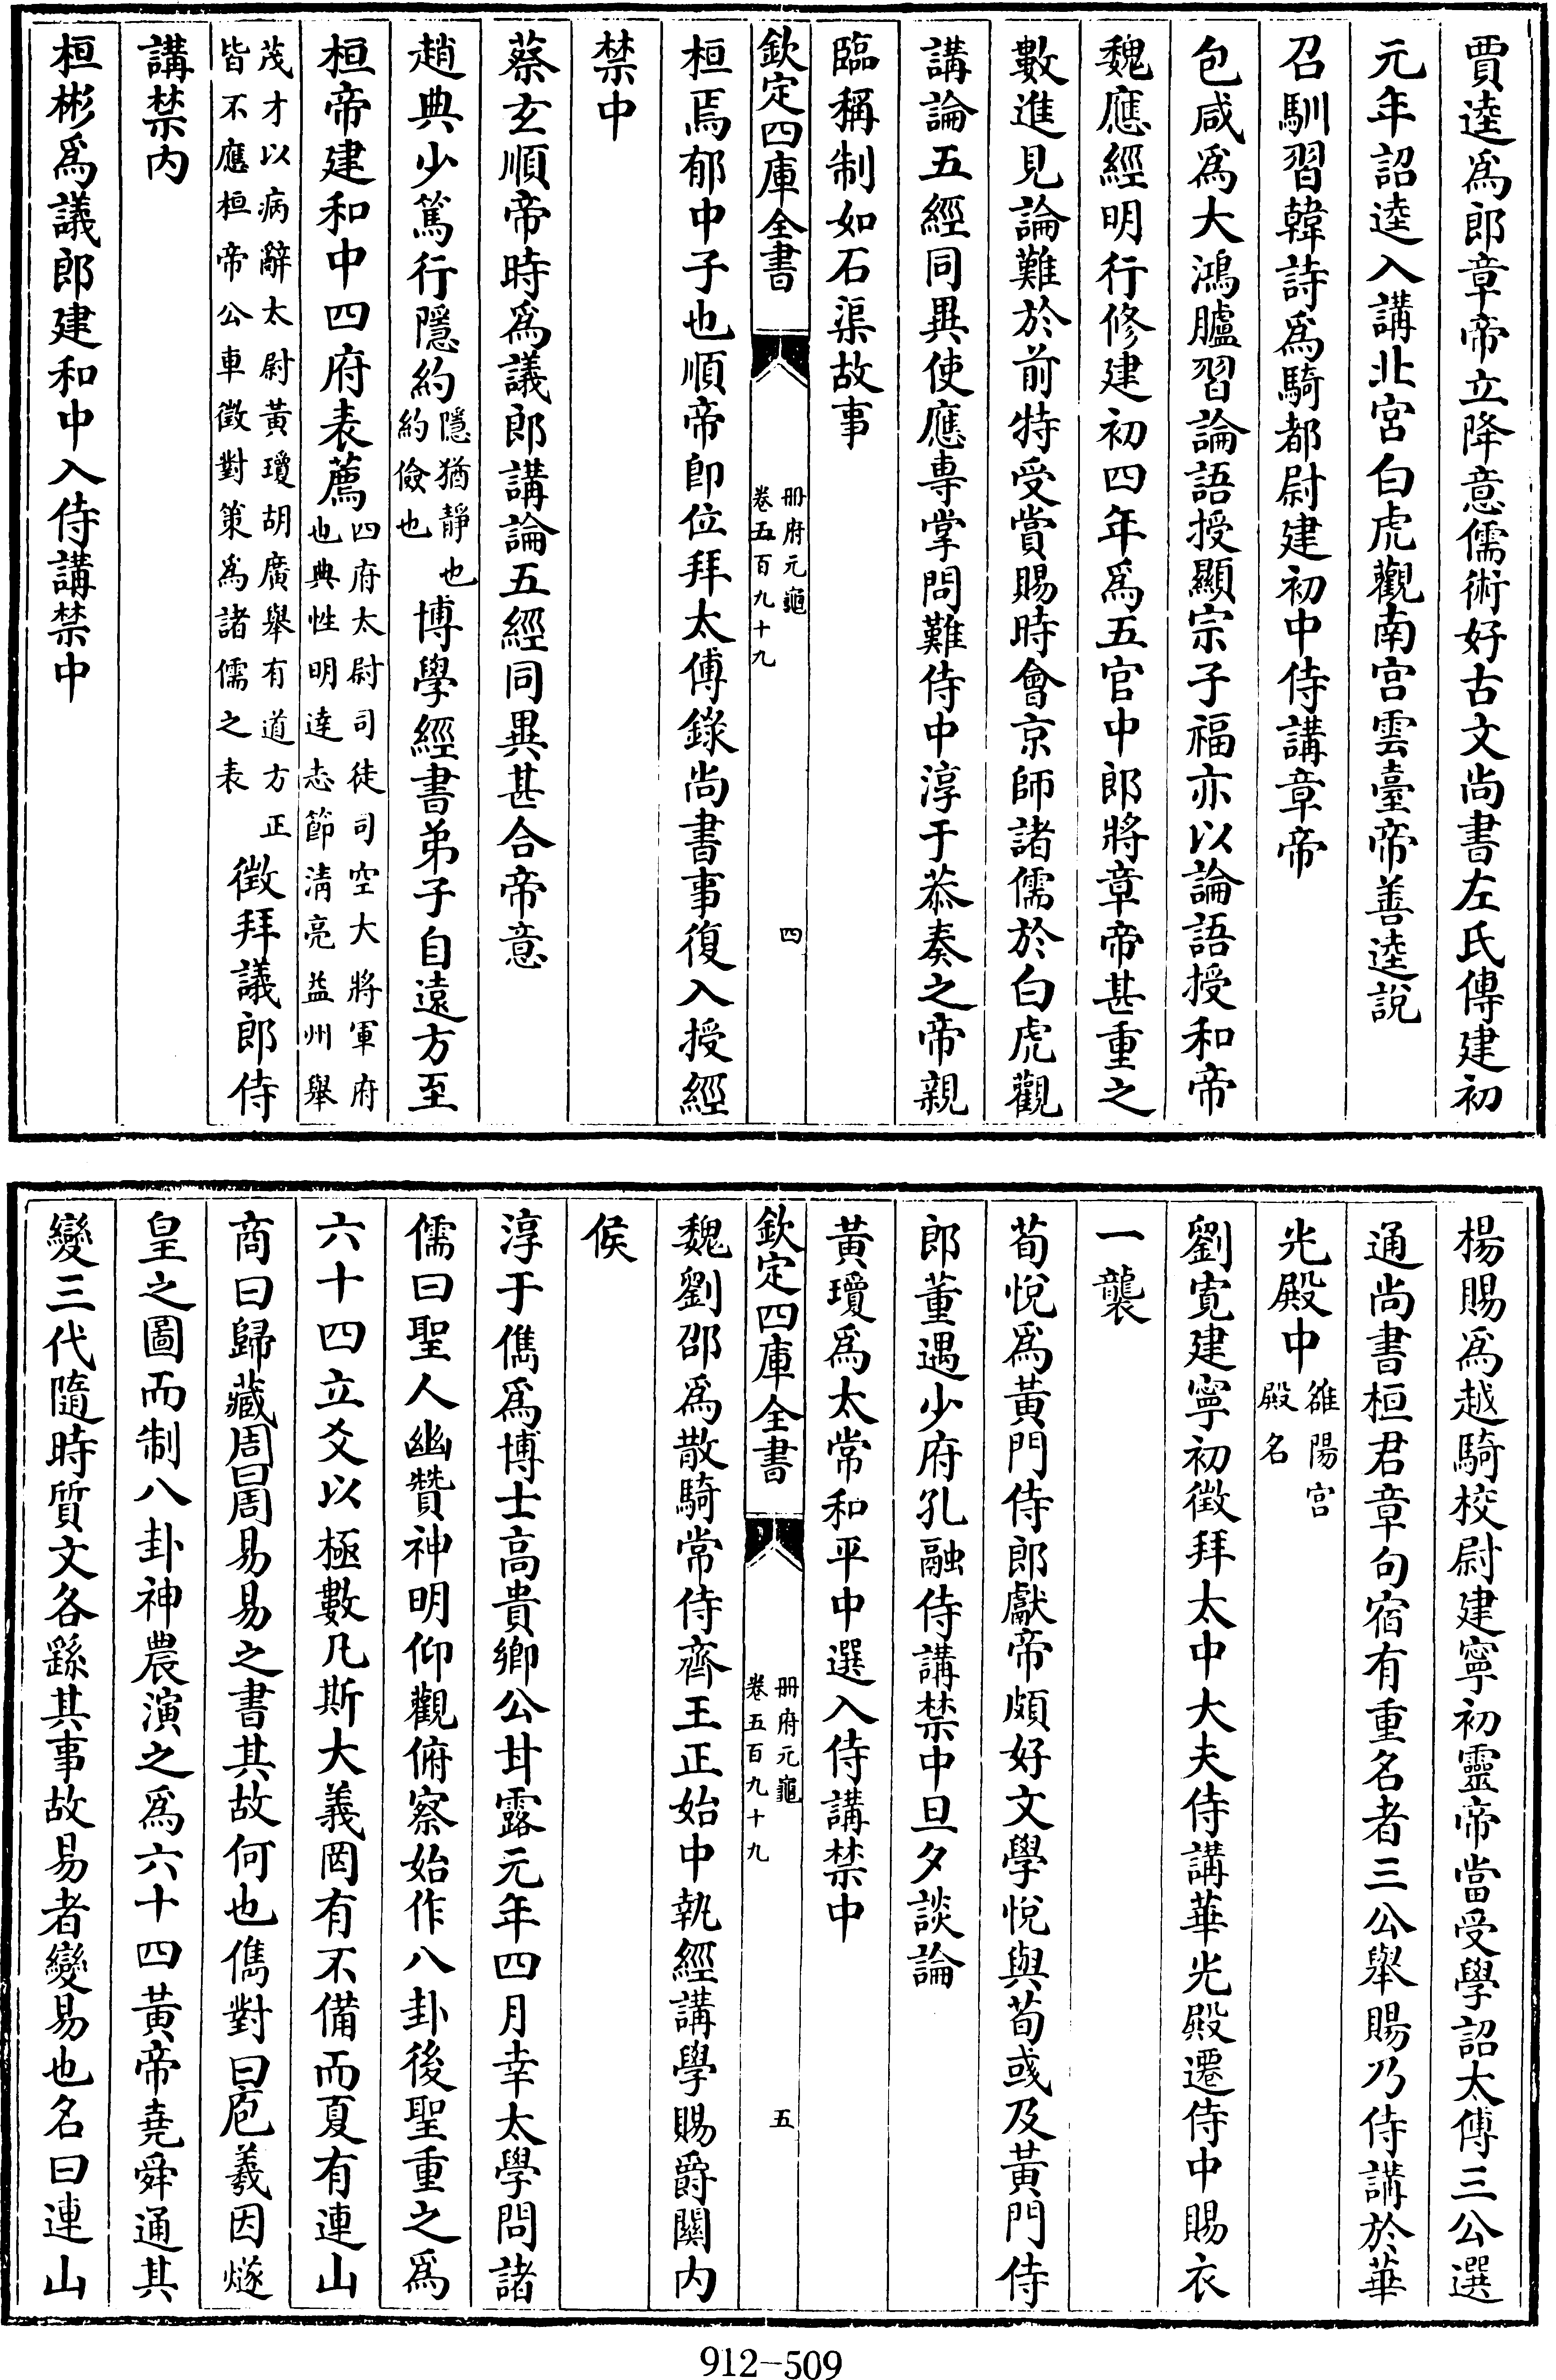 賈逵爲郎章帝立降意儒術好古文尚書左氏傳建初
元年詔逵入講北宮白虎觀南宮雲臺帝善逵說
召馴習韓詩爲騎都尉建初中侍講章帝
包咸爲大鴻臚習論語授顯宗子福亦以論語授和帝
魏應經明行修建初四年爲五官中郎將章帝甚重之
數進見論難於前特受賞賜時會京師諸儒於白虎觀
講論五經同異使應專掌問難侍中淳于恭奏之帝親
臨稱制如石渠故事
欽定四庫全書
冊府元龜
卷五百九十九
四
桓焉郁中子也順帝即位拜太傅錄尚書事復入授經
禁中
蔡玄順帝時爲議郎講論五經同異甚合帝意
趙典少篤行隱約隱猶靜也約儉也博學經書弟子自遠方至
桓帝建和中四府表薦四府太尉司徒司空大將軍府也典性明達志節清亮益州舉
茂才以病辭太尉黃瓊胡廣舉有道方正皆不應桓帝公車徵對策爲諸儒之表徵拜議郎侍
講禁內
桓彬爲議郎建和中入侍講禁中
楊賜爲越騎校尉建寧初靈帝當受學詔太傅三公選
通尚書桓君章句宿有重名者三公舉賜乃侍講於華
光殿中雒陽宮殿名
劉寬建寧初徵拜太中大夫侍講華光殿遷侍中賜衣
一襲
荀悅爲黃門侍郎獻帝頗好文學悅與荀彧及黃門侍
郎董遇少府孔融侍講禁中旦夕談論
黃瓊爲太常和平中選入侍講禁中
欽定四庫全書
冊府元龜
卷五百九十九
五
魏劉邵爲散騎常侍齊王正始中執經講學賜爵關內
侯
淳于儁爲博士高貴鄉公甘露元年四月幸太學問諸
儒曰聖人幽贊神明仰觀俯察始作八卦後聖重之爲
六十四立爻以極數凡斯大義罔有不備而夏有連山
商曰歸藏周曰周易易之書其故何也儁對曰庖羲因燧
皇之圖而制八卦神農演之爲六十四黃帝堯舜通其
變三代隨時質文各繇其事故易者變易也名曰連山
912-509